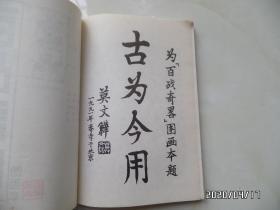 为「百战奇略」图画本题
古为今用
莫文骅
一九九一年春寺于北京
2020/04/11